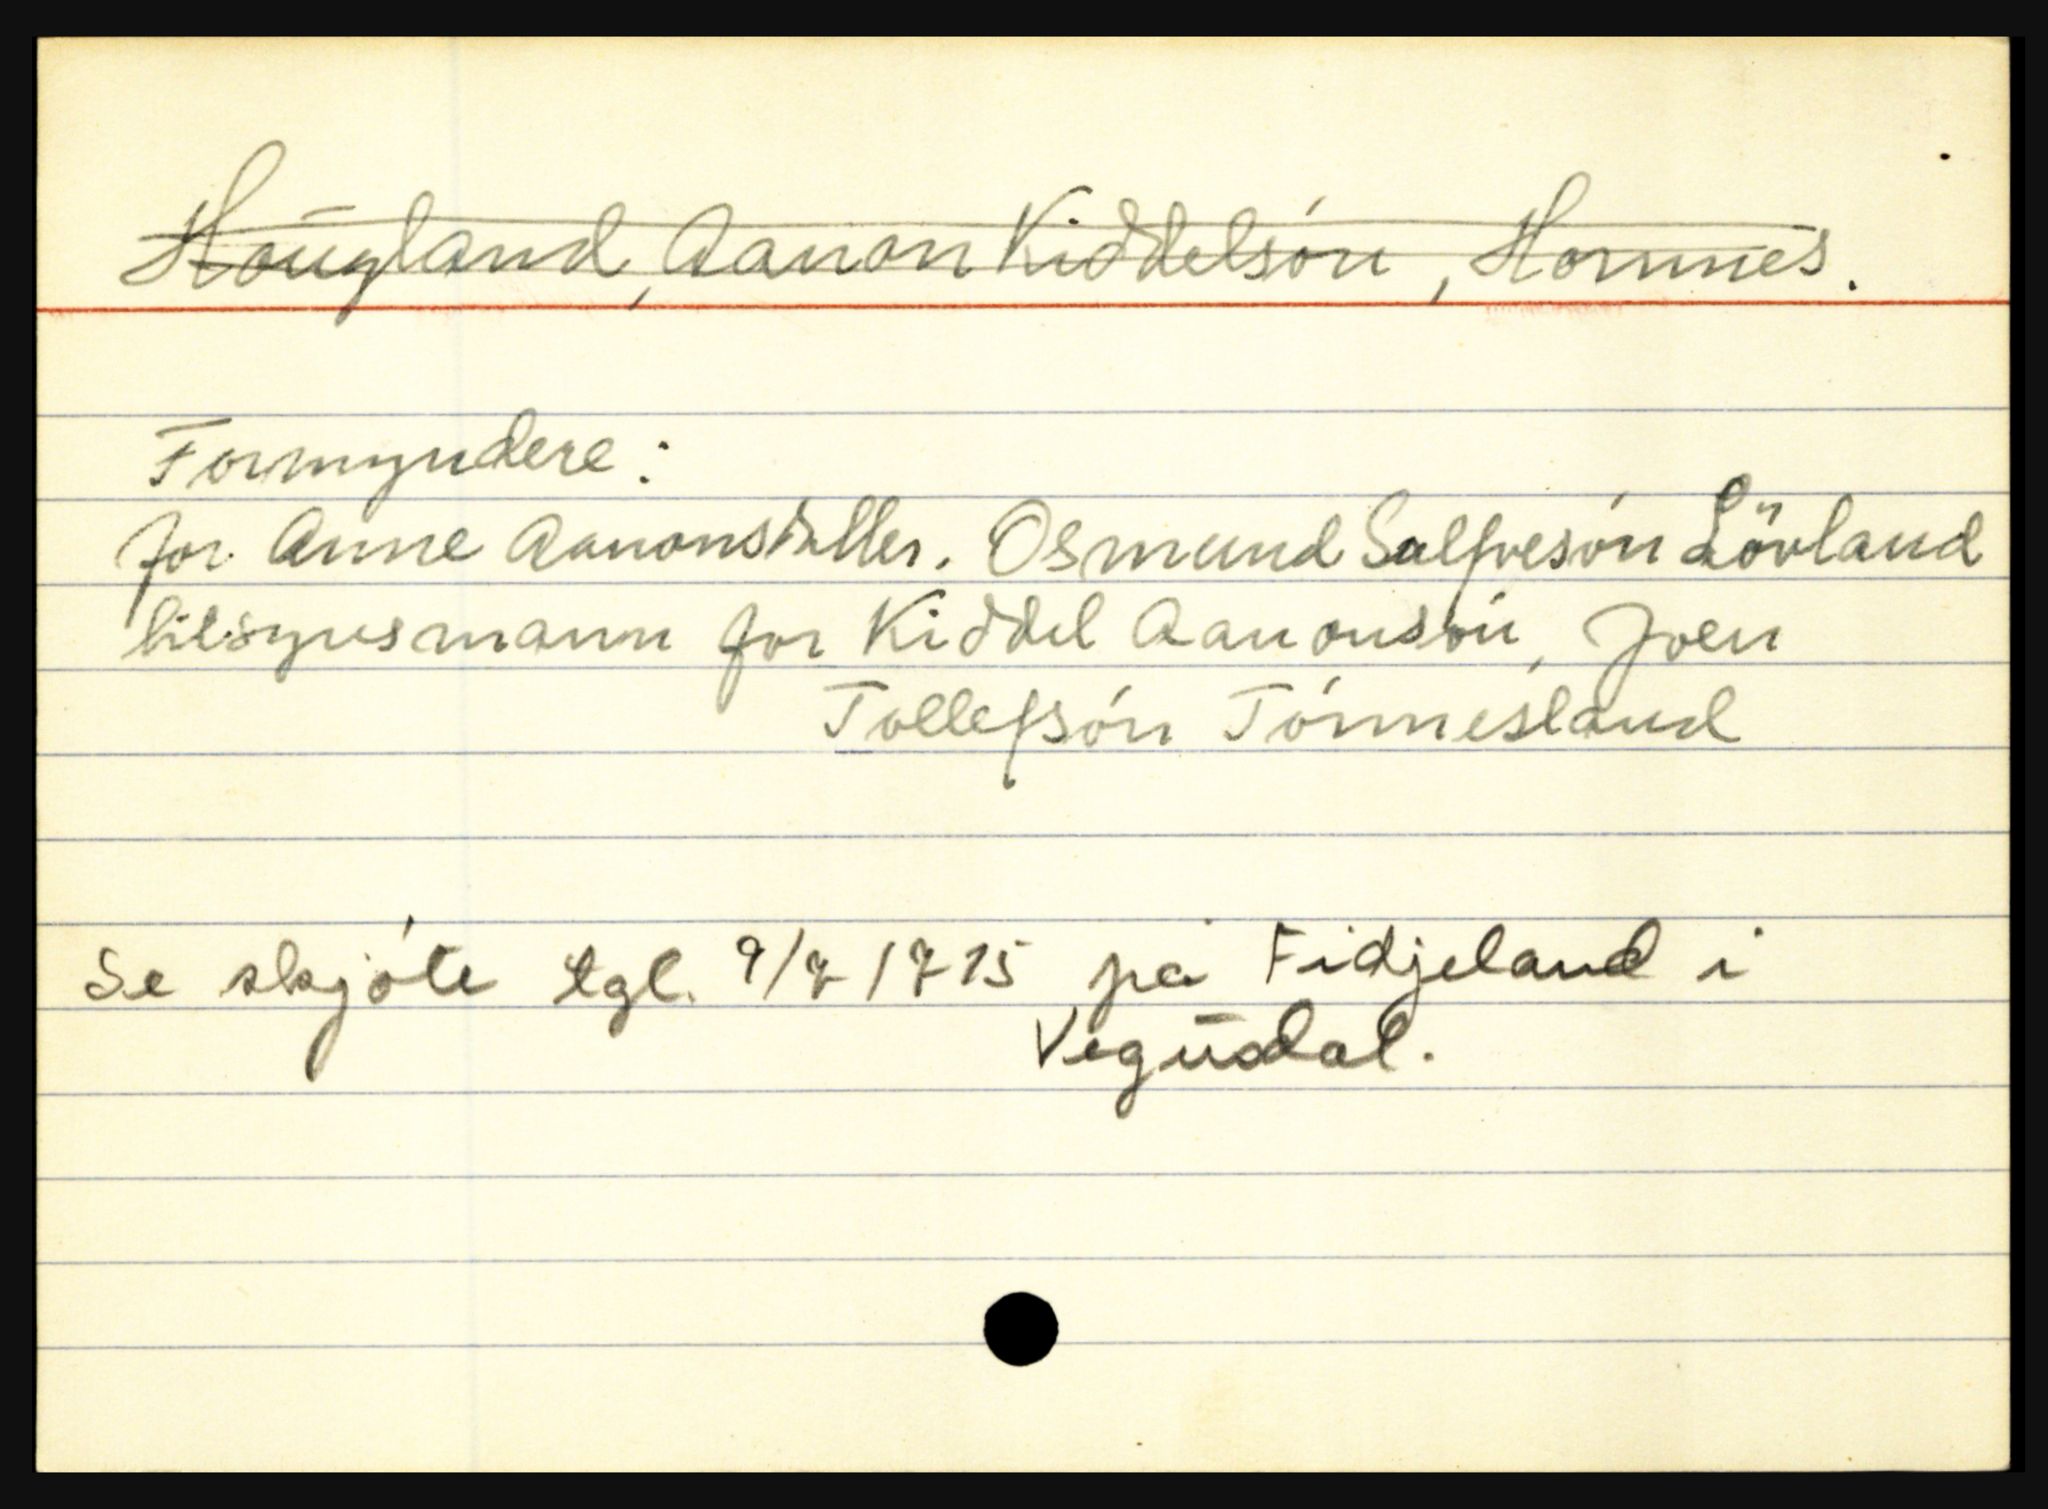 Hougland, Aanon Kiddelsón, Hornnes.
Formyndere:
for Anne Aanonsdtller. Osmund Salfvesón Lövland
tilsynsmann for Kiddel Aanonsón, Joen
Tollefsón Tónnesland
Se skjóte tgl. 9/7 1715 på Fidjeland i
Vegusdal.